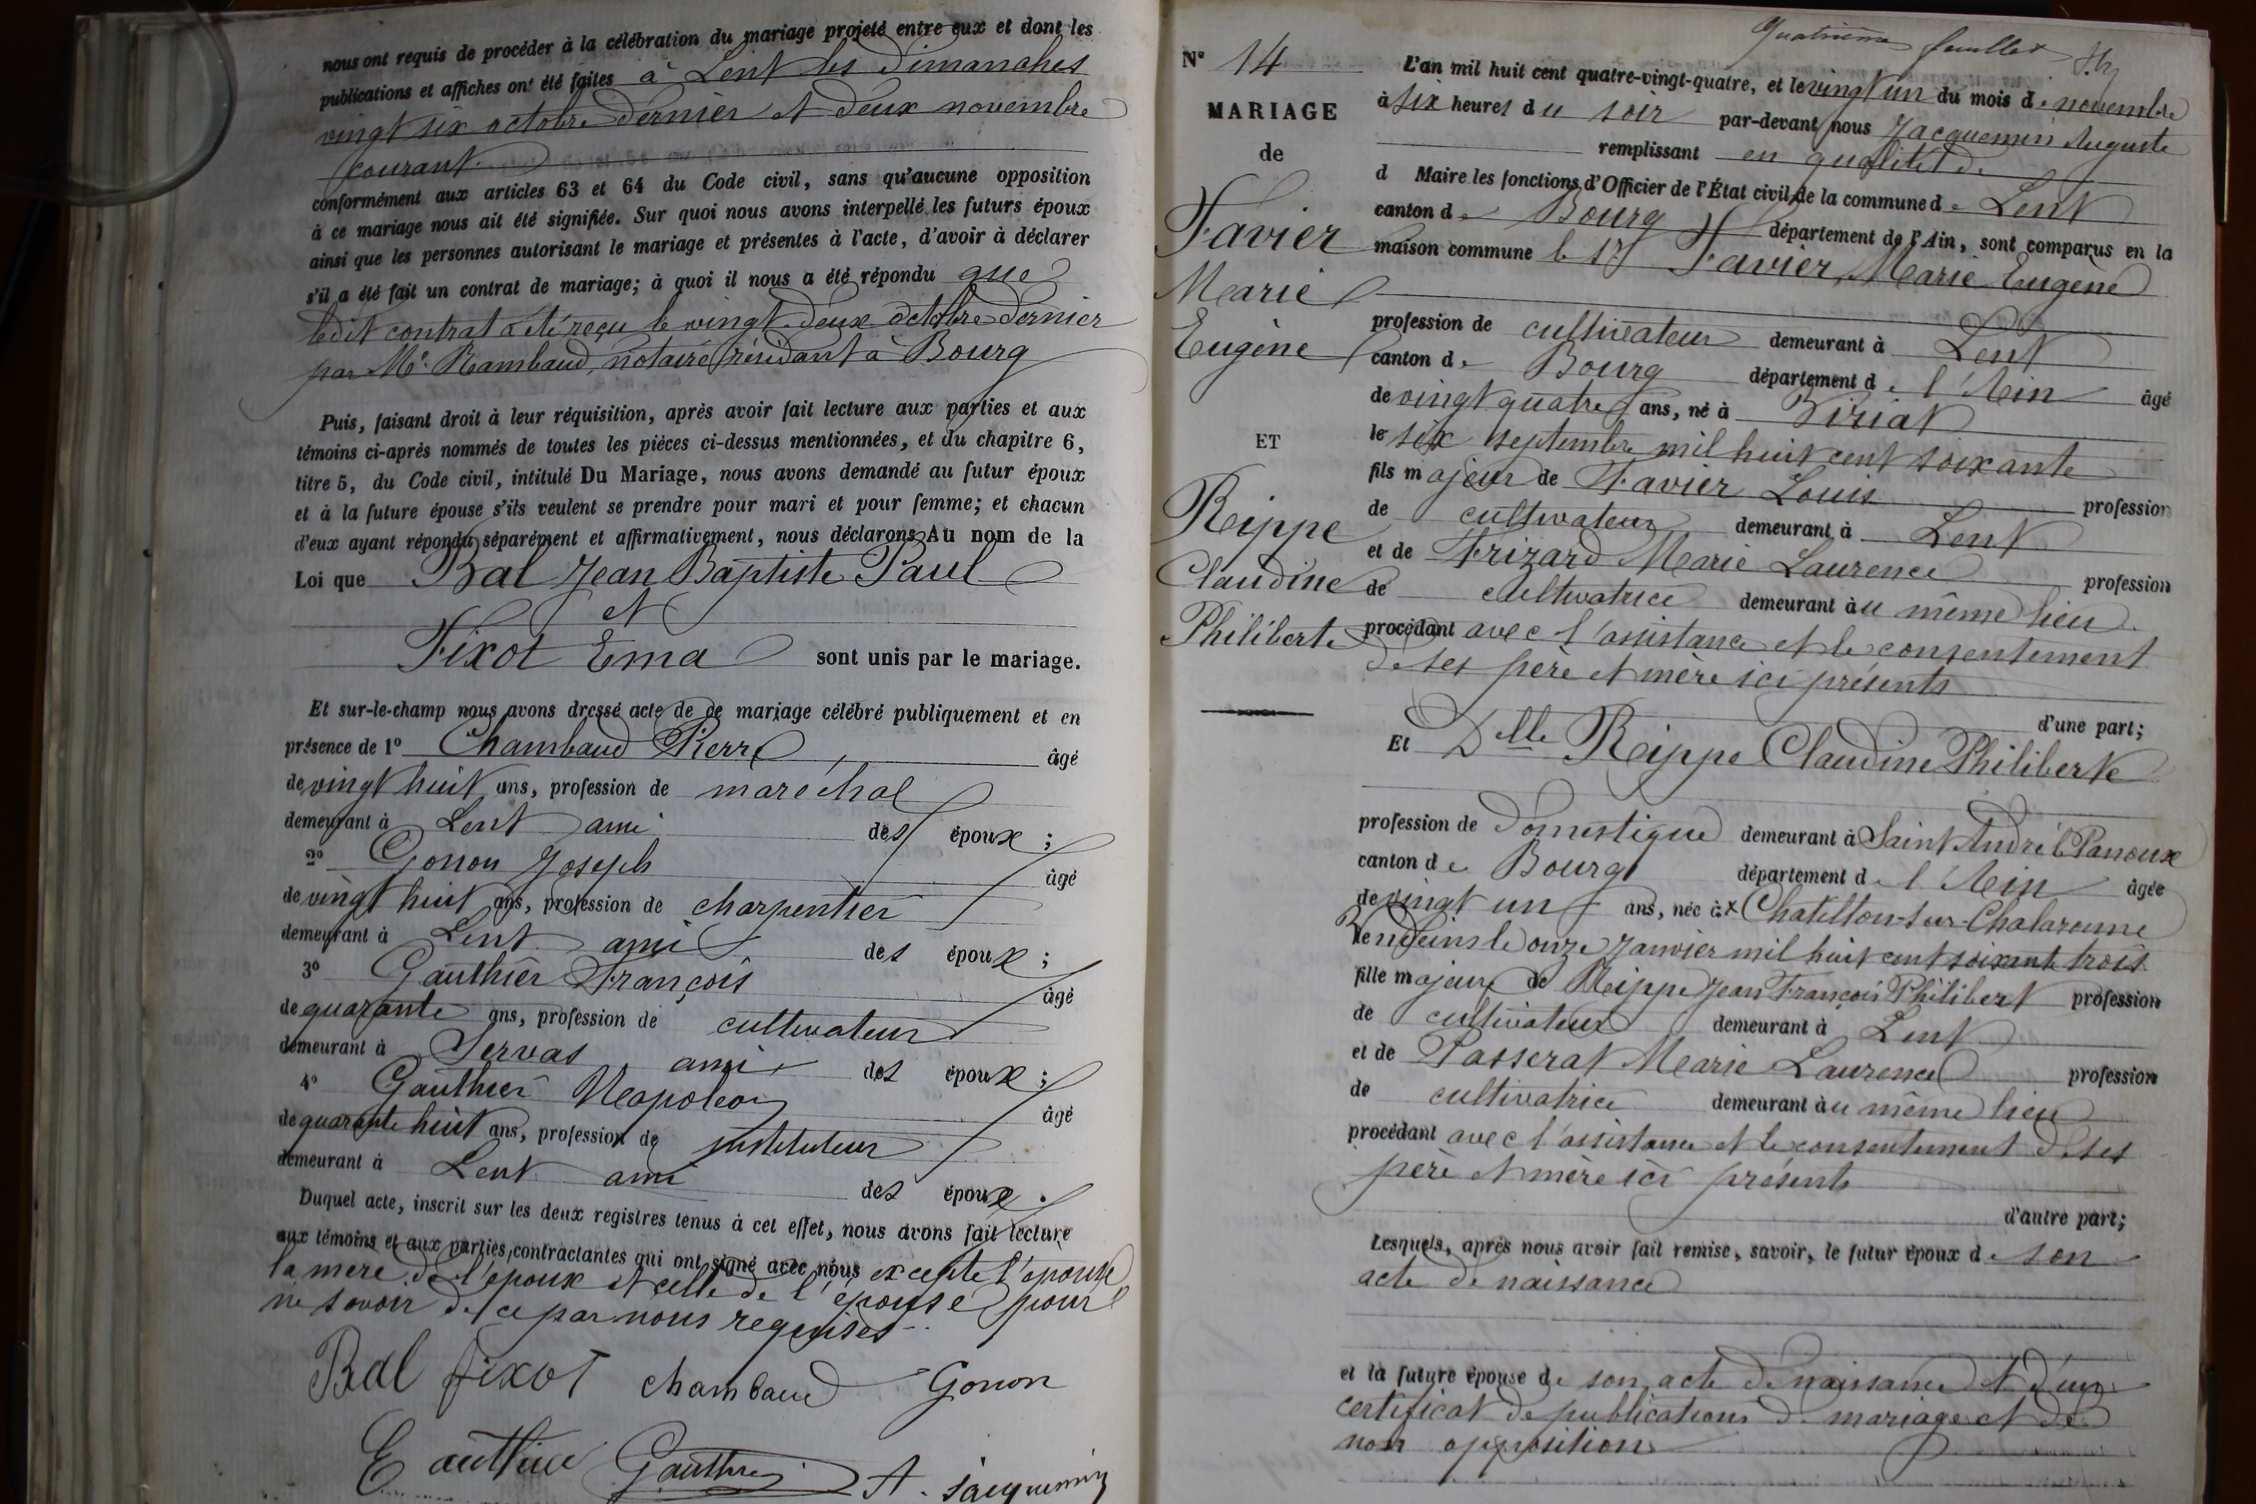 nous ont requis de procéder à la célébration du mariage projeté entre eux et dont les
publications et affiches ont été faites à Lent les dimanches
vingt six octobre dernier et deux novembre
courant
conformément aux articles 63 et 64 du Code civil, sans qu'aucune opposition
à ce mariage nous ait été signifiée. Sur quoi nous avons interpellé les futurs époux
ainsi que les personnes autorisant le mariage et présentes à l'acte, d'avoir à déclarer
s'il a été fait un contrat de mariage; à quoi il nous a été répondu que
ledit contrat a été reçu le vingt deux octobre dernier
par Me. Rambaud, notaire résidant à Bourg
Puis, faisant droit à leur réquisition, après avoir fait lecture aux parties et aux
témoins ci-après nommés de toutes les pièces ci-dessus mentionnées, et du chapitre 6,
titre 5, du Code civil, intitulé Du Mariage, nous avons demandé au futur époux
et à la future épouse s'ils veulent se prendre pour mari et pour femme; et chacun
d'eux ayant répondu séparément et affirmativement, nous déclarons Au nom de la
Loi que Bal Jean Baptiste Paul
et
Fixot Ema sont unis par le mariage.
Et sur-le-champ nous avons dressé acte de de mariage célébré publiquement et en
présence de 1° Chambaud Pierre, âgé
de vingt huit ans, profession de maréchal
demeurant à Lent ami des époux;
2° Gonon Joseph âgé
de vingt huit ans, profession de charpentier
demeurant à Lent ami des époux;
3° Gauthier François âgé
de quarante ans, profession de cultivateur
demeurant à Servas ami des époux;
4° Gauthier Napoléon âgé
de quarante huit ans, profession de instituteur
demeurant à Lent ami des époux.
Duquel acte, inscrit sur les deux registres tenus à cet effet, nous avons fait lecture
aux témoins et aux parties contractantes qui ont signé avec nous excepté l'épouse
la mère de l'époux et celle de l'épouse pour
ne savoir de ce par nous requises
Bal fixot chambaud Gonon
Gauthier A. Jacquemin
Quatrième feuillet
N° 14
MARIAGE
de
Favier
Marie
Eugène
ET
Reippe
Claudine
Philiberte
L'an mil huit cent quatre-vingt-quatre, et le vingt un du mois de novembre
à six heures du soir par-devant nous Jacquemin Auguste
remplissant en qualité de
d Maire les fonctions d'Officier de l'État civil de la commune de Lent
canton de Bourg département de l'Ain, sont comparus en la
maison commune le Sr Favier Marie Eugène
profession de cultivateur demeurant à Lent
canton de Bourg département de l'Ain âgé
de vingt quatre ans, né à Viriat
le six septembre mil huit cent soixante
fils majeur de Favier Louis profession
de cultivateur demeurant à Lent
et de Frizard Marie Laurence profession
de cultivatrice demeurant au même lieu
procédant avec l'assistance et le consentement
de ses père et mère ici présents
d'une part;
Et Dlle Reippe Claudine Philiberte
profession de domestique demeurant à Saint André le Panoux
canton de Bourg département de l'Ain âgée
de vingt un ans, née à x Chatillon-sur-Chalaronne
le onze Janvier mil huit cent soixante trois
fille majeure de Reippe Jean François Philibert profession
de cultivateur demeurant à Lent
et de Passerat Marie Laurence profession
de cultivatrice demeurant au même lieu
procédant avec l'assistance et le consentement de ses
père et mère ici présents
d'autre part;
Lesquels, après nous avoir fait remise, savoir, le futur époux de son
acte de naissance
et la future épouse de son acte de naissance et d'un
certificat de publications de mariage et de
non opposition